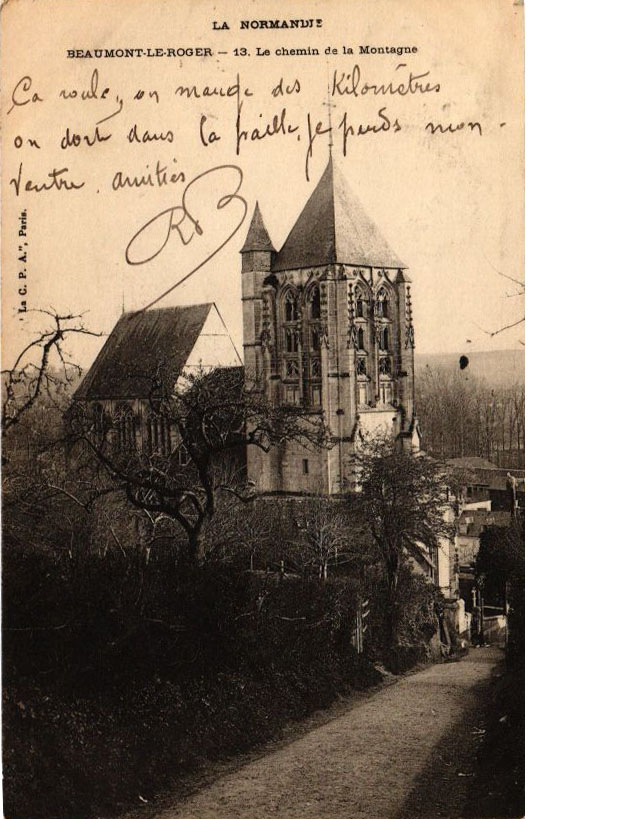 LA NORMANDIE
BEAUMONT-LE-ROGER – 13. Le chemin de la Montagne
Ça roule, on mange des Kilomètres
on dort dans la paille, je perds mon
ventre. amitiés
"La C. P. A.", Paris.